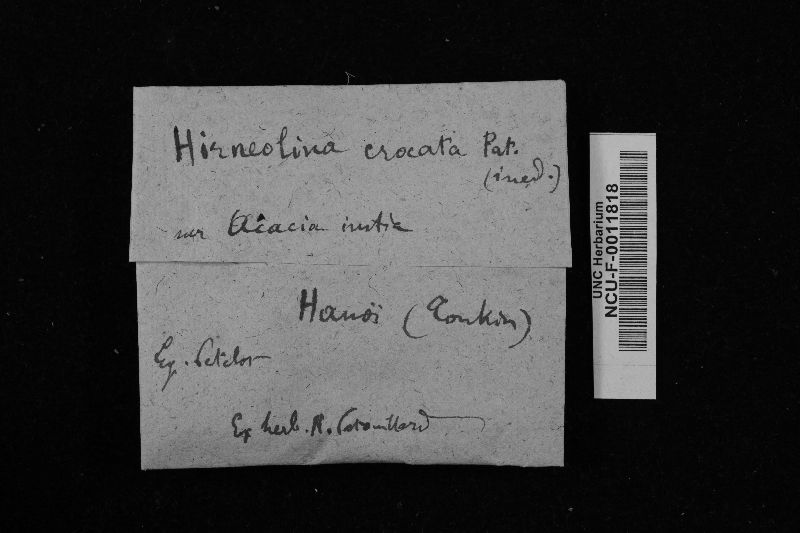 Hirneolina crocata Pat.
(ined.)
sur Acacia
Hanoï (Tonkin)
Ex. Petelot
Ex herb. N. Patouillard
UNC Herbarium
NCU-F-0011818